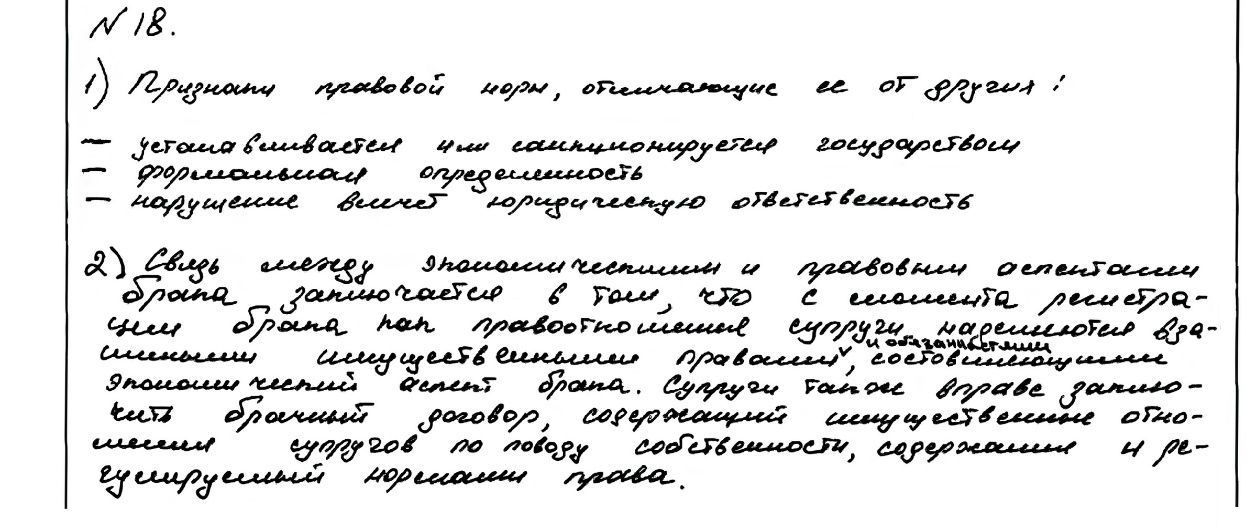 N 18.
1) Признаки правовой нормы, отличающие ее от других:
— устанавливается или санкционируется государством
— формальная определенность
— нарушение влечет юридическую ответственность
2) Связь между экономическими и правовым аспектами
брака заключается в том, что с момента регистра-
ции брака как правоотношения супруги наделяются вза-
имными имущественными правами и обязанностями, составляющими
экономический аспект брака. Супруги также вправе заклю-
чить брачный договор, содержащий имущественные отно-
шения супругов по поводу собственности, содержания и ре-
гулируемый нормами права.